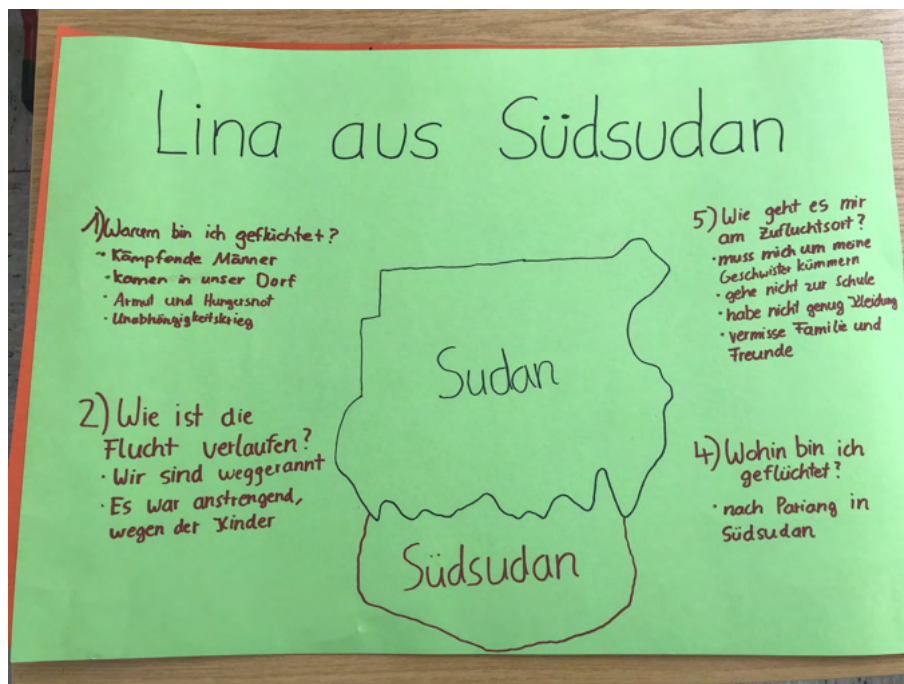 Lina aus Südsudan
1) Warum bin ich geflüchtet?
- Kämpfende Männer
· Kamen in unser Dorf
· Armut und Hungersnot
· Unabhängigkeitskrieg
2) Wie ist die
Flucht verlaufen?
· Wir sind weggerannt
· Es war anstrengend,
wegen der Kinder
Sudan
Südsudan
5) Wie geht es mir
am Zufluchtsort?
· muss mich um meine
Geschwister kümmern
· gehe nicht zur Schule
· habe nicht genug Kleidung
· vermisse Familie und
Freunde
4) Wohin bin ich
geflüchtet?
· nach Pariang in
Südsudan